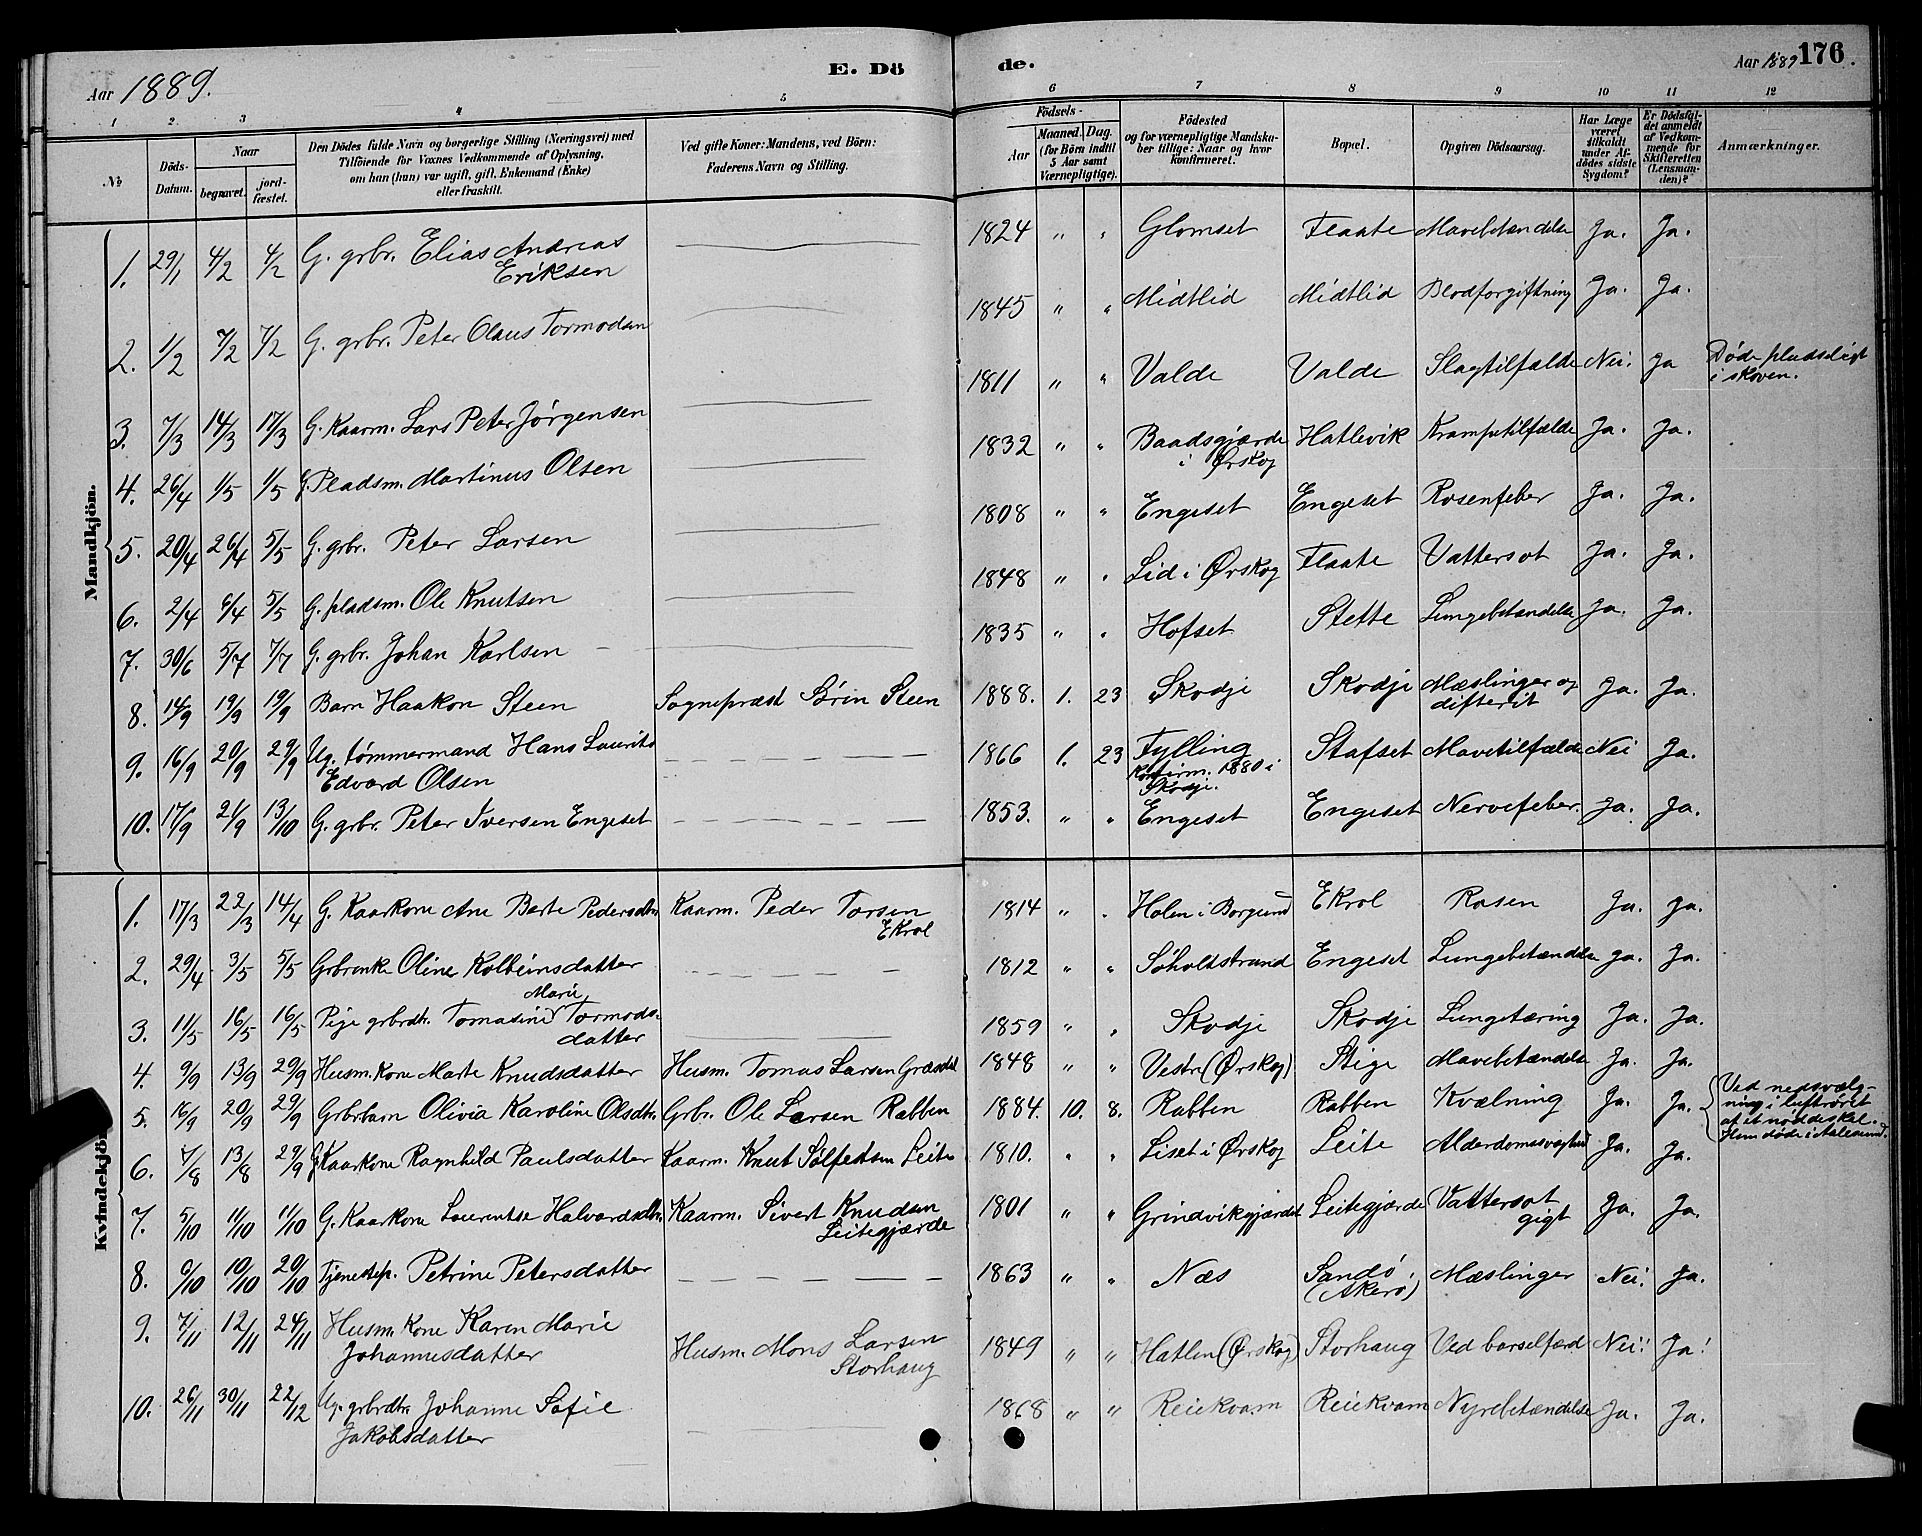 Aar 1889.
E. Dö
de.
Aar 1889
176
1 2. 3 4 5 6 7 8 9 10 11 12
No
Döds-Datum.
Naar
begravet.
jord-fæstet.
Den Dödes fulde Navn og borgerlige Stilling (Næringsvei) med
Tilföiende for Voxnes Vedkommende af Oplysning,
om han (hun) var ugift, gift, Enkemand (Enke)
eller fraskilt.
Ved gifte Koner: Mandens, ved Börn:
Faderens Navn og Stilling.
Födsels-
Aar
Maaned. Dag.
(for Börn indtil
5 Aar samt
Værnepligtige).
Födested
og for værnepligtige Mandska-
ber tillige: Naar og hvor
konfirmeret.
Bopæl.
Opgiven Dödsaarsag.
Har Læge
været
tilkaldt
under Af-
dödes sidste
Sygdom?
Er Dödsfal-
det anmeldt
af Vedkom-
mende for
Skifteretten
(Lensman-
den)?
Anmærkninger.
Mandkjön.
1. 29/1 4/2 4/2 G. grbr. Elias Andreas 1824 " " Glomset Flaate Mavebetændelse Ja. Ja.
Eriksen
2. 1/2 7/2 7/2 G. grbr. Peter Olaus Tormodsen 1845 " " Midtlid Midtlid Blodforgiftning Ja. Ja.
3. 7/3 14/3 17/3 G. Kaarm. Lars Peter Jørgensen 1811 " " Valde Valde Slagtilfælde Nei. Ja Døde pludseligt
i skoven.
4. 26/4 1/5 1/5 G. Pladsm. Martinus Olsen 1832 " " Baadsgjærde Hatlevik Krampetilfælde Ja. Ja.
i Ørskog
5. 20/4 26/4 5/5 G. grbr. Peter Larsen 1808 " " Engeset Engeset Rosenfeber Ja. Ja.
6. 2/4 6/4 5/5 G. pladsm. Ole Knutsen 1848 " " Lid i Ørskog Flaate Vattersot Ja. Ja.
7. 30/6 5/7 7/7 G. grbr. Johan Karlsen 1835 " " Hofset Stette Lungebetændelse Ja. Ja.
8. 14/9 19/9 19/9 Barn Haakon Steen Sogneprest Sørin Steen 1888. 1. 23 Skodje Skodje Mæslinger og Ja. Ja.
difterit
9. 16/9 20/9 29/9 Ug. tømmermand Hans Laurits 1866 1. 23 Fylling Stafset Mavetilfælde Nei Ja.
Edvard Olsen Konfirm. 1880 i
Skodje.
10. 17/9 21/9 13/10 G. grbr. Peter Iversen Engeset 1853. " " Engeset Engeset Nervefeber. Ja. Ja.
Kvindekjön.
1. 17/3 22/3 14/4 G. Kaarkone Ane Berte Pedersdtr. Kaarm. Peder Torsen 1814 " " Holen i Borgund Ekrol Rosen Ja. Ja.
Ekrol
2. 29/4 3/5 5/5 Grbrenke Oline Kolbeinsdatter 1812 " " Søholdtstrand Engeset Lungebetændelse Ja. Ja.
Marie
3. 11/5 16/5 16/5 Pige grbrdtr. Tomasine Tormods- 1859 " " Skodje Skodje Lungetæring Ja. Ja.
datter
4. 9/9 13/9 29/9 Husm. Kone Marte Knudsdatter Husm. Tomas Larsen Græsdal 1848 " " Vestre (Ørskog) Stige Mavebetændelse Ja. Ja.
5. 16/9 20/9 29/9 Grbrbarn Olivia Karoline Olsdtr. Grbr. Ole Larsen Rabben 1884. 10. 8. Rabben Rabben Kvælning Ja. Ja. Ved nedsvælg-
ning i luftrøret
af et nøddeskal.
Hun døde i Aalesund.
6. 7/8 13/8 29/9 G. Kaarkone Ragnhild Paulsdatter Kaarm. Knut Sølfestsen Leite 1810. " " Liset i Ørskog Leite Alderdomssvaghed Ja. Ja.
7. 5/10 11/10 11/10 G. Kaarkone Laurentse Halvardsdtr. Kaarm. Sivert Knudsen 1801 " " Grindvikgjærdet Leitegjærde Vattersot Ja. Ja.
Leitegjærde gigt
8. 6/10 10/10 20/10 Tjenestep. Petrine Petersdatter 1863 " " Næs Sandø Mæslinger Nei. Ja.
(Akerø)
9. 7/11 12/11 24/11 Husm. Kone Karen Marie Husm. Mons Larsen 1849 " " Hatlen (Ørskog) Storhaug Ved barselfærd Nei! Ja!
Johannesdatter Storhaug
10. 26/11 30/11 22/12 Ug. grbrdtr. Johanne Sofie 1868 " " Reiekvam Reiekvam Nyrebetændelse Ja. Ja.
Jakobsdatter